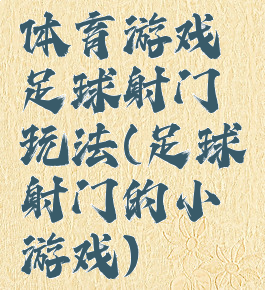 体育游戏
足球射门
玩法(足球
射门的小
游戏)